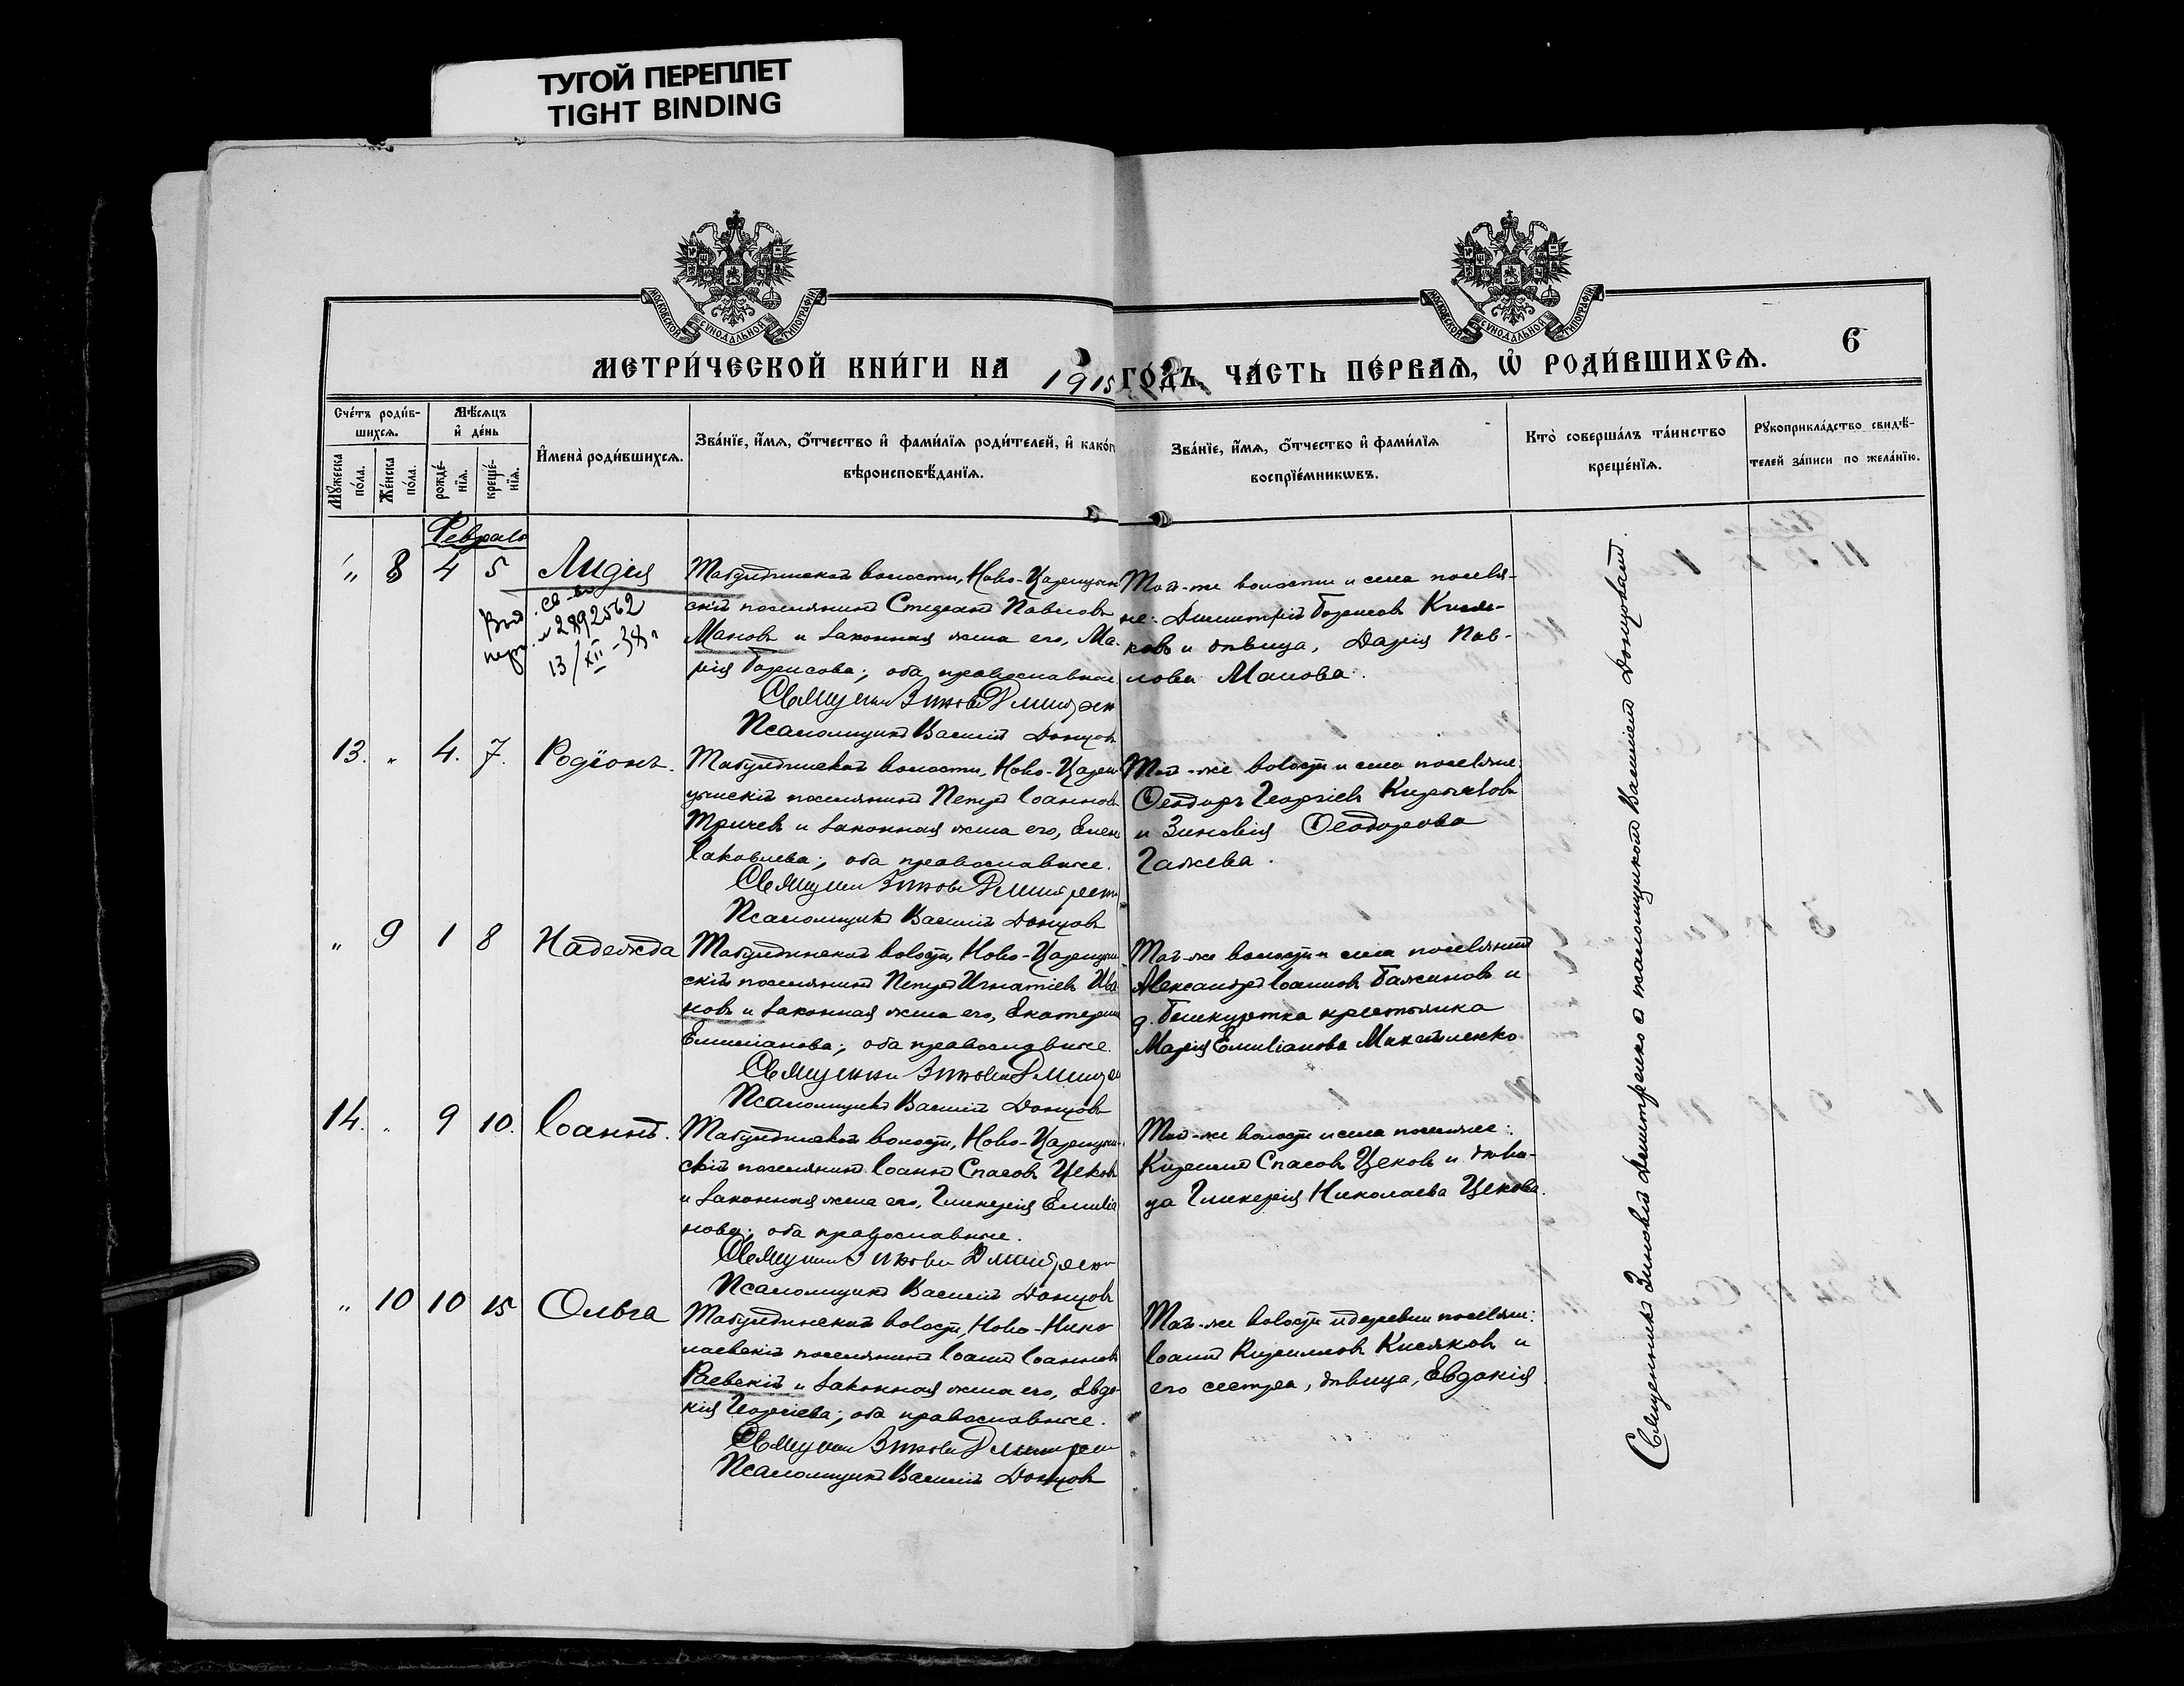 ТУГОЙ ПЕРЕПЛЕТ
TIGHT BINDING
МОСКОВСКОЙ СѴНОДАЛЬНОЙ ТИПОГРАФІИ
МОСКОВСКОЙ СѴНОДАЛЬНОЙ ТИПОГРАФІИ
МЕТРИ́ЧЕСКОЙ КНИ́ГИ НА 1915 ГО́ДЪ, ЧА́СТЬ ПЕ́РВАѦ, Ѡ҆ РОДИ́ВШИХСѦ.
6
Сче́тъ роди́в-
шихсѧ.
Мꙋ́жеска по́ла.
Же́нска по́ла.
Мѣ́сѧцъ
и҆ де́нь
рожде́-
нїѧ.
креще́-
нїѧ.
И҆мена̀ роди́вшихсѧ.
Зва́нїе, и҆́мѧ, ѻ҆́тчество и҆ фами́лїѧ роди́телей, и҆ како́гѡ
вѣроисповѣ́данїѧ.
Зва́нїе, и҆́мѧ, ѻ҆́тчество и҆ фами́лїѧ
воспрїе́мникѡвъ.
Кто̀ соверша́лъ та́инство
креще́нїѧ.
Рꙋкоприкла́дство свидѣ́-
телей за́писи по жела́нїю.
Февраль
" 8 4 5 Лидія
Выд. св-во
№ 2892562
13/XII-38 г
Табулдинской волости, Ново-Царицын
скій поселянинъ Стефанъ Павловъ
Мановъ и законная жена его, Ма-
рія Борисова; оба православные
Священникъ Зиновій Дмитренко
Псаломщикъ Василій Донцовъ
Той-же волости и села поселя-
не: Димитрій Борисовъ Кися-
ковъ и дѣвица, Дарія Пав-
лова Манова.
13. " 4. 7. Родіонъ.
Табулдинской волости, Ново-Цариц
ынскій поселянинъ Петръ Іоанновъ
Тричевъ и законная жена его, Елена
Іаковлева; оба православные.
Священникъ Зиновій Дмитренко
Псаломщикъ Василій Донцовъ
Той-же волости и села поселяне:
Ѳеодоръ Георгіевъ
и Зиновія Ѳеодорова
Гажева.
" 9 1 8 Надежда
Табулдинской волости, Ново-Царицын
скій поселянинъ Петръ Игнатіевъ Ива
новъ и законная жена его, Екатерина
Емиліанова; оба православные.
Священникъ Зиновій Дмитренко
Псаломщикъ Василій Донцовъ
Той-же волости и села поселянинъ
Александръ Іоанновъ Бажановъ и
д. крестьянка
Марія Емиліанова
14. " 9 10. Іоаннъ.
Табулдинской волости, Ново-Царицын-
скій поселянинъ Іоаннъ Спасовъ Цековъ
и законная жена его, Гликерія Емиліа
нова; оба православные.
Священникъ Зиновій Дмитренко
Псаломщикъ Василій Донцовъ
Той-же волости и села поселяне:
Кириллъ Спасовъ Цековъ и дѣви-
ца Гликерія Николаева Цекова.
" 10 10 15 Ольга
Табулдинской волости, Ново-Нико
лаевскій поселянинъ Іоаннъ Іоанновъ
Раевскій и законная жена его, Евдо-
кія Георгіева; оба православные.
Священникъ Зиновій Дмитренко
Псаломщикъ Василій Донцовъ
Той-же волости и деревни поселяне:
Іоаннъ Кирилловъ Кисяковъ и
его сестра, дѣвица, Евдокія.
Священникъ Зиновій Дмитренко съ псаломщикомъ Василіемъ Донцовымъ.